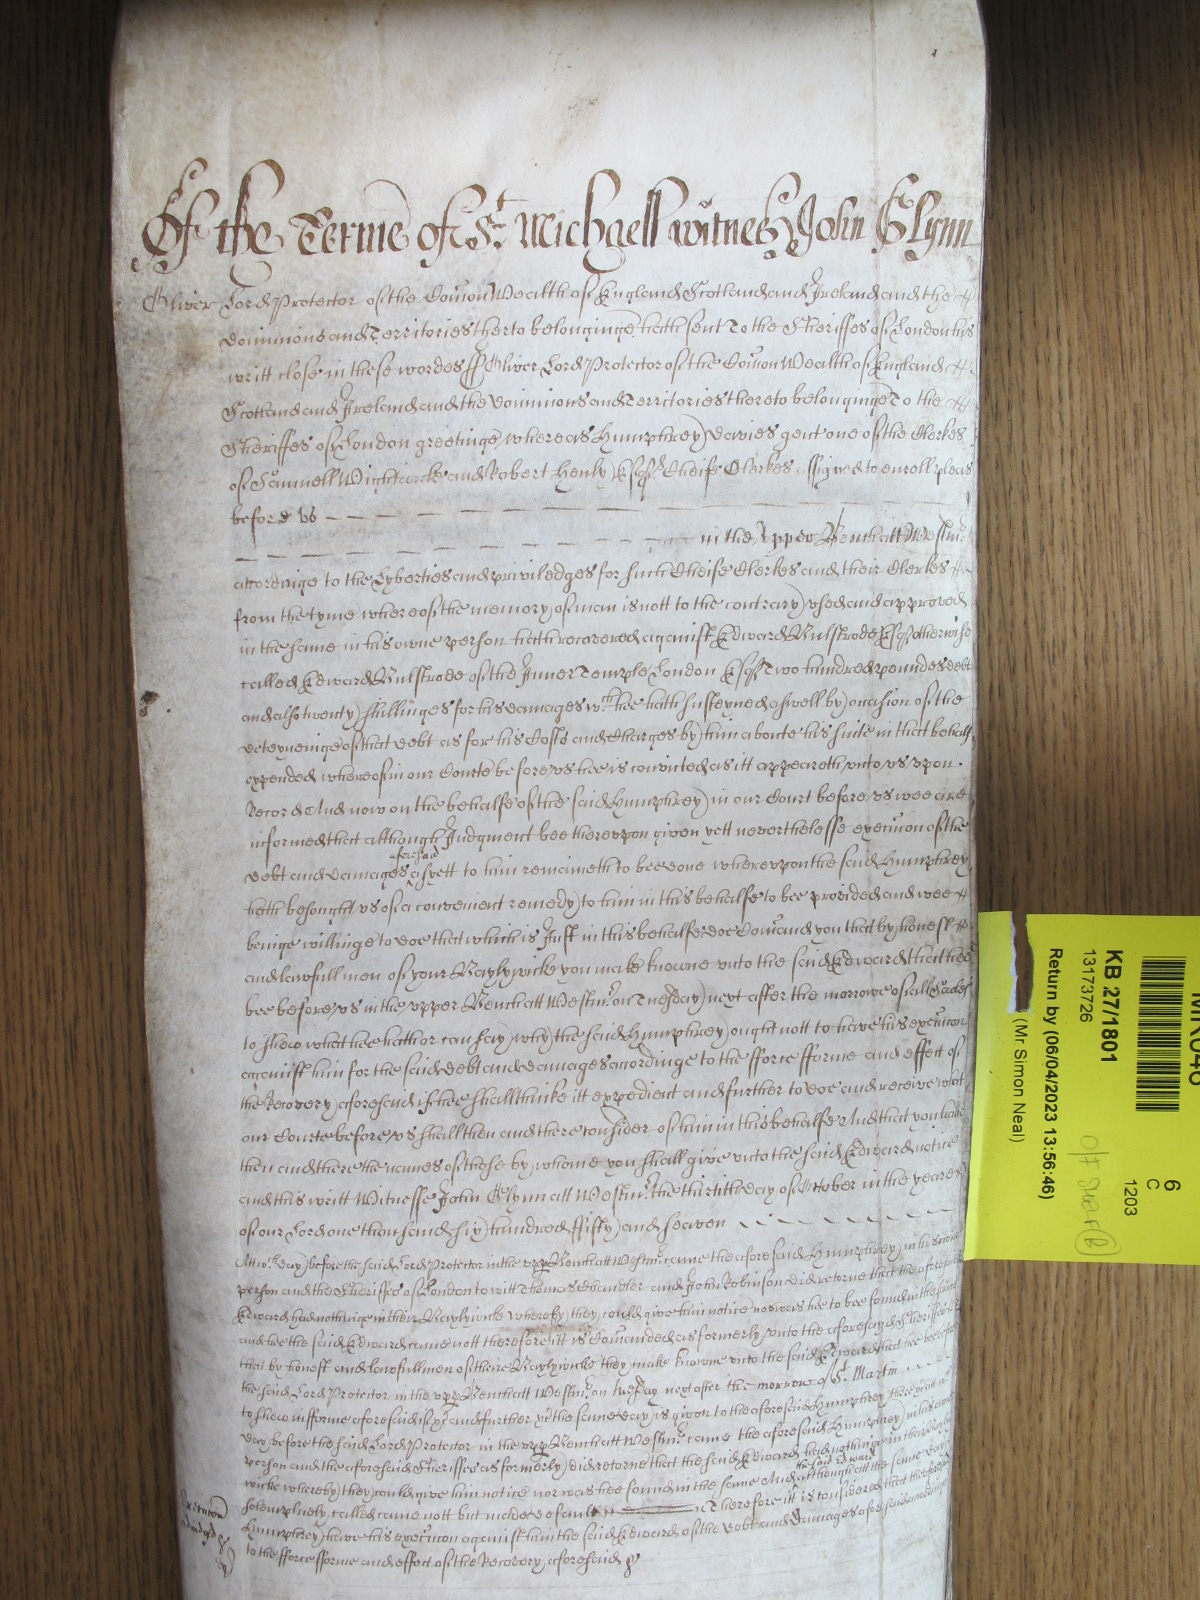 Of the Terme of St. Michaell witnes John Glynn
Oliver Lord Protector of the Comon Wealth of England Scotland and Ireland and the
Dominions and Territories therto belonginge hath sent to the Sheriffes of London his
writt close in these wordes ss Oliver Lord Protector of the Comon Wealth of England
Scotland and Ireland and the Dominions and Territories thereto belonginge To the
Sheriffes of London greetinge whereas Humphrey Davies gent one of the Clerkes
of Samuell Wightwicke and Robert Henly Esqrs Cheife Clerkes assigned to enroll pleas
before us
in the Upper Bench att Westmr
accordinge to the Lyberties and priviledges for such Cheife Clerkes and their Clerkes
from the tyme whereof the memory of man is nott to the contrary used and approved
in the same in his owne person hath recovered against Edward Bulstrode Esqr otherwise
called Edward Bulstrode of the Inner Temple London Esqr Two hundred poundes debt
and also twenty shillinges for his damages wch hee hath susteyned aswell by occasion of the
deteyneinge of that debt as for his Costs and Charges by him aboute his suite in that behalf
expended whereof in our Courte before us hee is convicted as itt appeareth unto us upon
Record And now on the behalfe of the said Humphrey in our Court before us wee are
informed that although Judgment bee thereupon given yett neverthelesse execucon of the
debt and damages aforesaid as yett to him remaineth to bee done whereupon the said Humphrey
hath besought us of a convenient remedy to him in this behalfe to bee provided and wee
beinge willinge to doe that which is Just in this behalfe doe Comand you that by honest
and lawfull men of your Baylywicke you make knowne unto the said Edward that hee
bee before us in the upper Bench att Westmr on Tuesday next after the morrow of all Soules
to shew what hee hath or can say why the said Humphrey ought nott to have his execucon
against him for the said debt and damages accordinge to the fforce fforme and effect of
the Recovery aforesaid if hee shall thinke itt expedient and further to doe and receive what
our Courte before us shall then and there consider of him in this behalfe And that you have
then and there the names of those by whome you shall give unto the said Edward notice
and this writt Wittnesse John Glynn att Westmr the thirtith day of October in the yeare
of our Lord one thousand six hundred ffifty and seaven
Att wch day before the said Lord Protector in the upper Bench att Westmr came the aforesaid Humphrey in his owne
person and the Sheriffes of London to witt Thomas Chandler and John Robinson did retorne that the aforesaid
Edward had nothinge in their Baylywicke whereby they could give him notice nor was hee to bee found in the same
and hee the said Edward came nott therefore itt is Comanded as formerly unto the aforesayd Sheriffes
that by honest and lawfull men of theire Baylywicke they make knowne unto the said Edward that hee bee before
the said Lord Protector in the upper Bench att Westmr on tuesday next after the morrow of St. Martin
to shew in fforme aforesaid if &c and further &c the same day is given to the aforesaid Humphrey there &c att wch
day before the said Lord Protector in the upper Bench att Westmr came the aforesaid Humphrey in his owne
person and the aforesaid Sheriffes as formerly did retorne that the said Edward had nothinge in their Bayly
wicke whereby they could give him notice nor was hee found in the same And the said Edward although att the same day
solempnely called came nott but made default Therefore itt is considered that the aforesaid
Humphrey have his execucon against him the said Edward of the debt and damages aforesaid accordinge
to the fforce fforme and effect of the Recovery aforesaid &c
Execucon
adiudged &c
KB 27/1801
13173726
Return by (06/04/2023 13:56:46)
(Mr Simon Neal)
6
C
1203